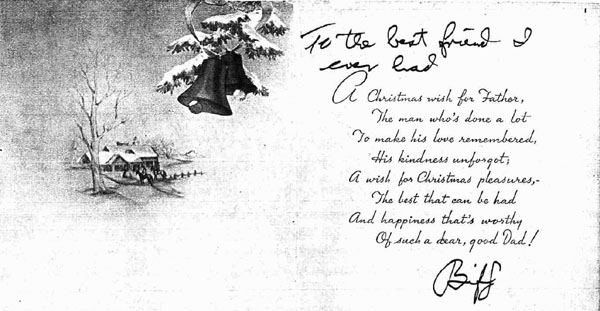 To the best friend I
ever had
A Christmas wish for Father,
The man who's done a lot
To make his love remembered,
His kindness unforgot;
A wish for Christmas pleasures,-
The best that can be had
And happiness that's worthy
Of such a dear, good Dad!
Biff